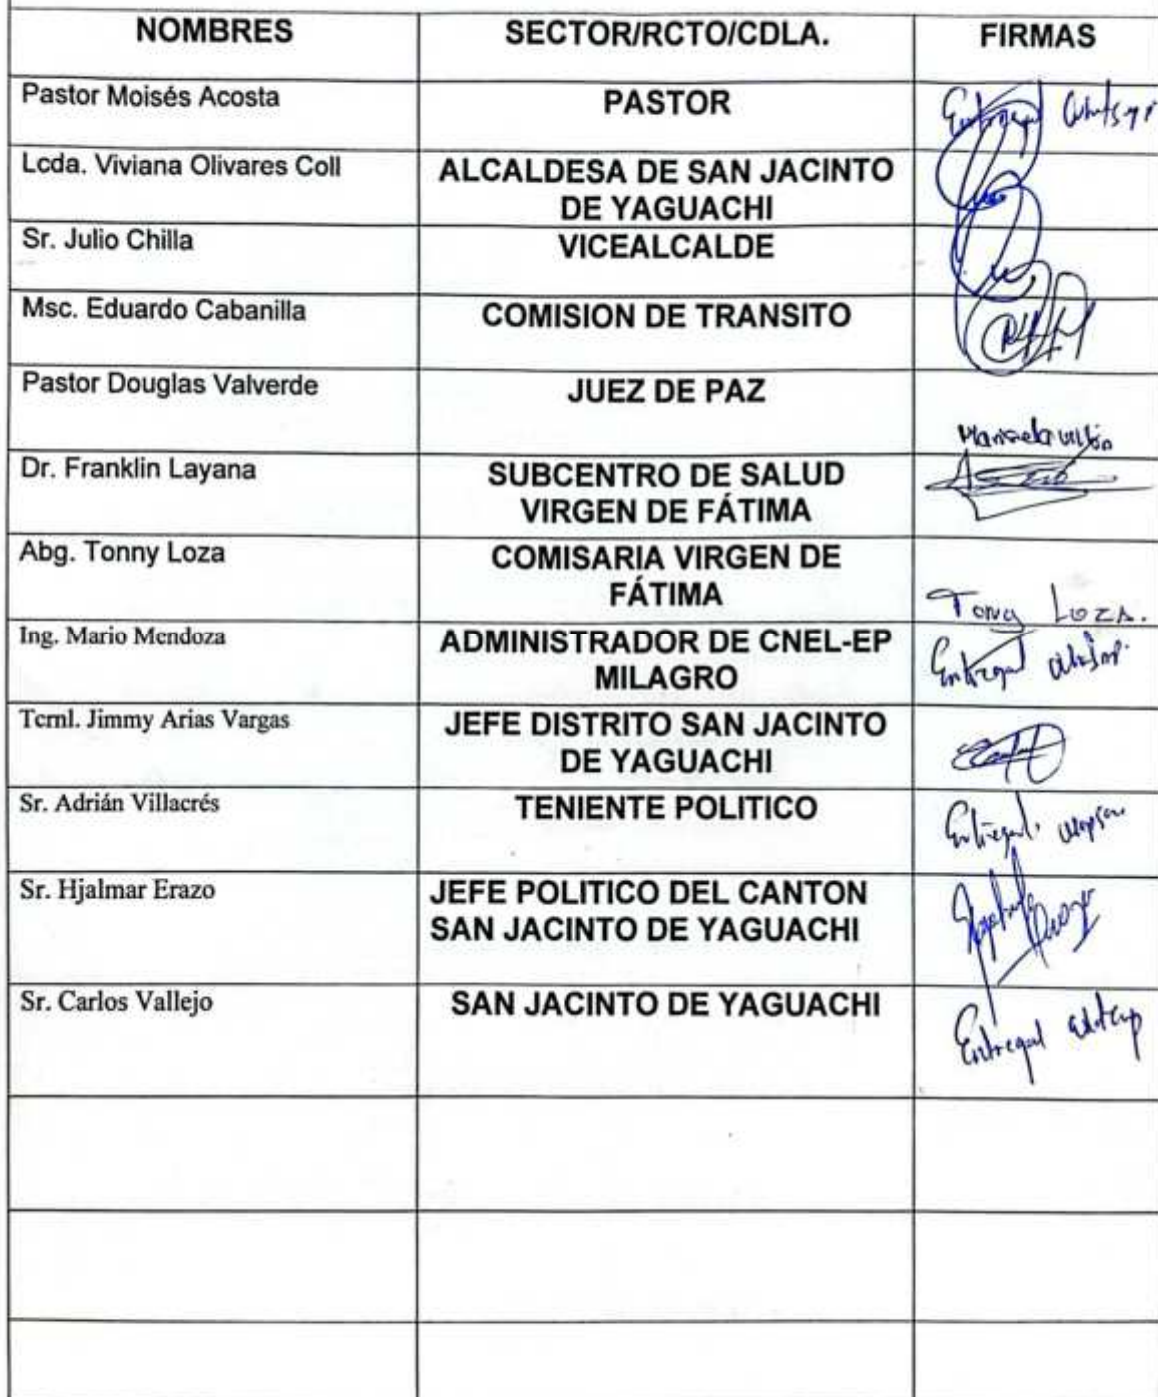 NOMBRES SECTOR/RCTO/CDLA. FIRMAS
Pastor Moisés Acosta PASTOR
Lcda. Viviana Olivares Coll ALCALDESA DE SAN JACINTO
DE YAGUACHI
Sr. Julio Chilla VICEALCALDE
Msc. Eduardo Cabanilla COMISION DE TRANSITO
Pastor Douglas Valverde JUEZ DE PAZ
Dr. Franklin Layana SUBCENTRO DE SALUD
VIRGEN DE FÁTIMA
Abg. Tonny Loza COMISARIA VIRGEN DE
FÁTIMA
Tony Loza.
Ing. Mario Mendoza ADMINISTRADOR DE CNEL-EP
MILAGRO
Tcrnl. Jimmy Arias Vargas JEFE DISTRITO SAN JACINTO
DE YAGUACHI
Sr. Adrián Villacrés TENIENTE POLITICO
Sr. Hjalmar Erazo JEFE POLITICO DEL CANTON
SAN JACINTO DE YAGUACHI
Sr. Carlos Vallejo SAN JACINTO DE YAGUACHI